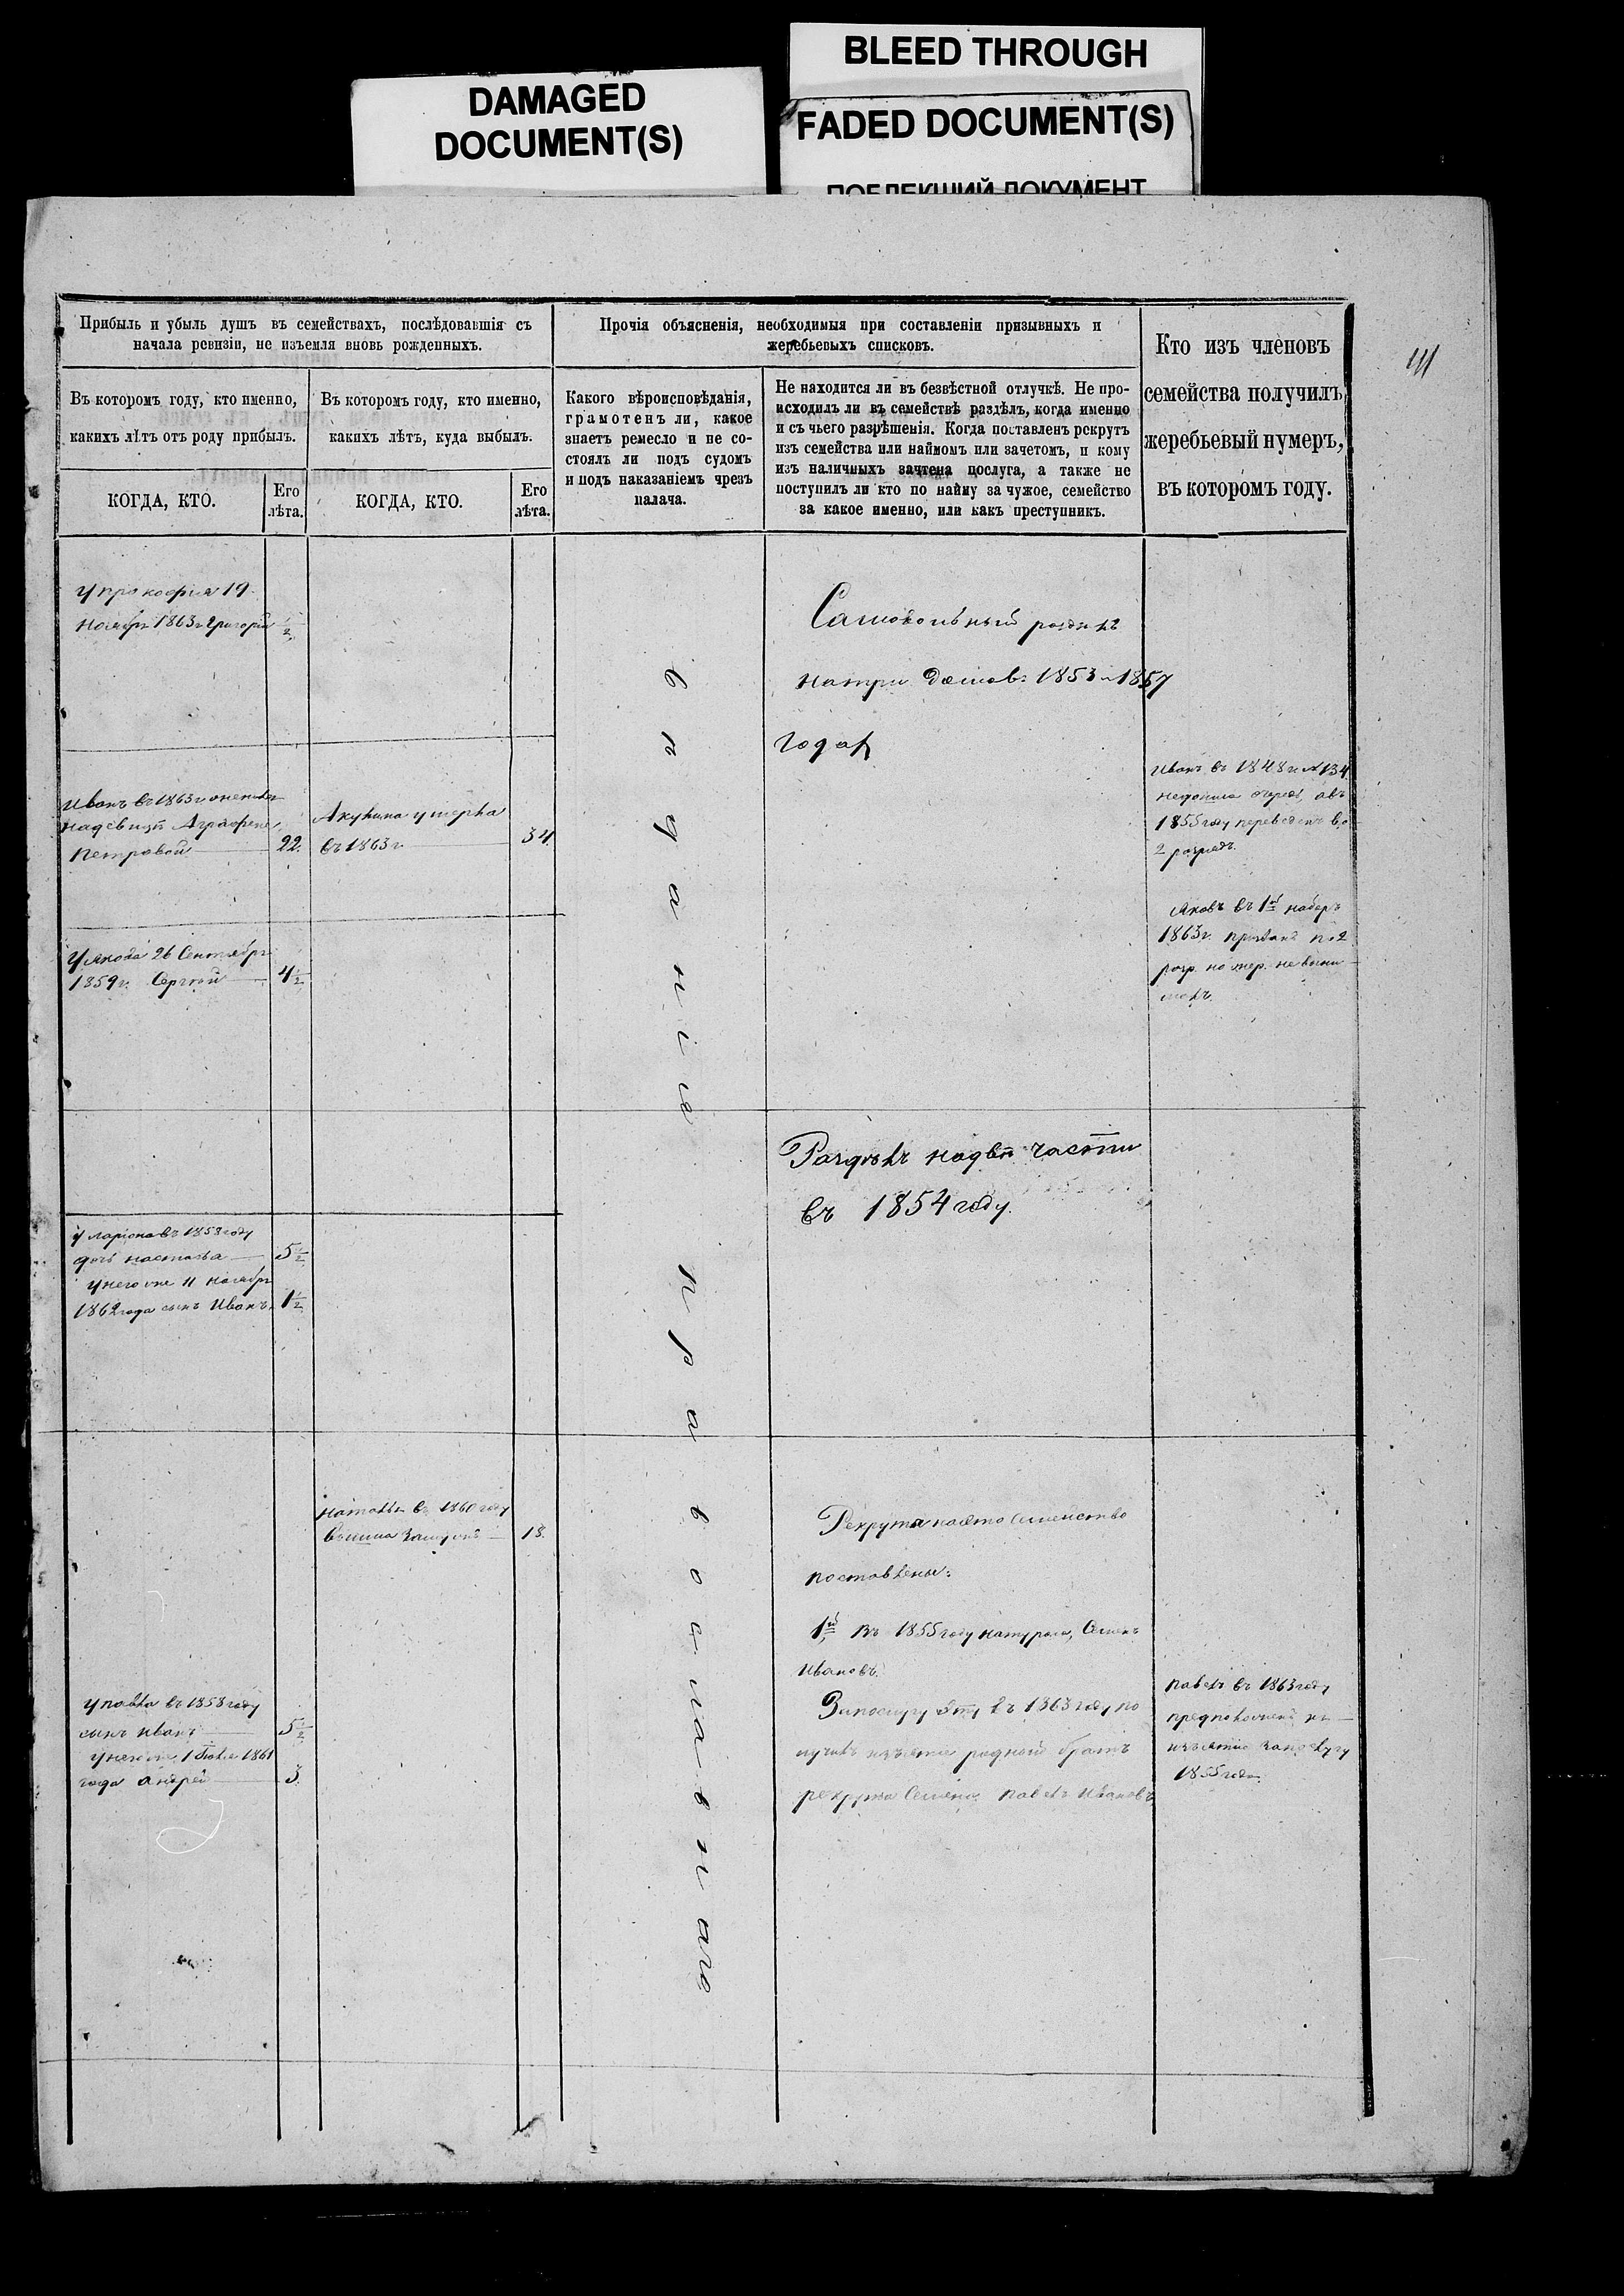 BLEED THROUGH
DAMAGED
DOCUMENT(S)
FADED DOCUMENT(S)
ПОБЛЕКШИЙ ДОКУМЕНТ
Прибыль и убыль душъ въ семействахъ, послѣдовавшія съ
начала ревизіи, не изъемля вновь рожденныхъ.
Въ которомъ году, кто именно,
какихъ лѣтъ отъ роду прибылъ.
КОГДА, КТО.
Его
лѣта.
Въ которомъ году, кто именно,
какихъ лѣтъ, куда выбылъ.
КОГДА, КТО.
Его
лѣта.
Прочія объясненія, необходимыя при составленіи призывныхъ и
жеребьевыхъ списковъ.
Какого вѣроисповѣданія,
грамотенъ ли, какое
знаетъ ремесло и не со-
стоялъ ли подъ судомъ
и подъ наказаніемъ чрезъ
палача.
Не находится ли въ безвѣстной отлучкѣ. Не про-
исходилъ ли въ семействѣ раздѣлъ, когда именно
и съ чьего разрѣшенія. Когда поставленъ рекрутъ
изъ семейства или наймомъ или зачетомъ, и кому
изъ наличныхъ зачтена послуга, а также не
поступилъ ли кто по найму за чужое, семейство
за какое именно, или какъ преступникъ.
Кто изъ членовъ
семейства получилъ
жеребьевый нумеръ,
въ которомъ году.
111
У прокофья 19
Ноября 1863 г Григорій ½
Самовольный раздѣлъ
на три дома въ 1853 и 1857
годах
Иванъ въ 1863 г
на девицѣ Аграфене
Петровой 22.
Акулина умерла
въ 1863 г. 34.
Иванъ въ 1848 г. №134
очередь, а въ
1855 году переведенъ во
2 разрядъ.
Яковъ въ 1й наборъ
1863 г. призванъ по 2
разр. но жер. не выни
малъ.
У якова 26 Сентября
1859 г. Сергѣй 4½
Раздѣлъ на двѣ части
въ 1854 году.
У ларіона въ 1858 году
дочь настасья 5½
у него же 11 ноября
1862 года сынъ Иванъ 1½
Наталья въ 1860 году
вышла замужъ 18.
Рекрута на это семейство
поставлены:
1й, въ 1855 году натурою, Семенъ
Ивановъ.
За послугу эту въ 1863 году по
лучилъ изъятіе родной братъ
рекрута Семена Павелъ Ивановъ
У павла въ 1858 году
сынъ иванъ 5½
у него же, 1 1861
года Андрей 3.
Павелъ въ 1863 году
къ
изъятію за послугу
1855 года.
вѣроисповѣданіе православнаго